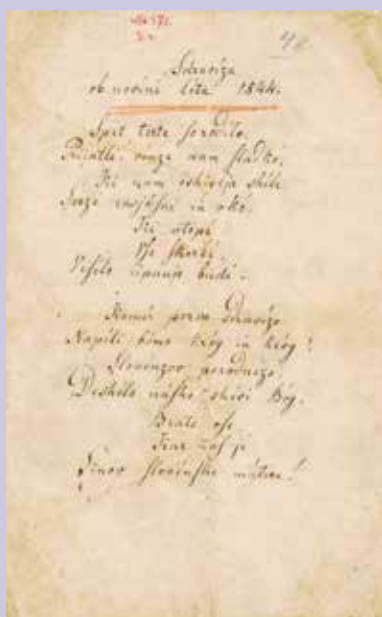 42
Sdravíza
ob novini léta 1844.
Spet terte ſo rodile
Prijatli vinze nam ſladkó,
Ki nam oshivlja shile
Serze raſjáſni in okó.
Ki otopi
Vſe ſkerbi,
Veſélo upanje budí.
Komú pervo sdravizo
Napíli bómo króg in króg?
Slovenzov porodnizo
Deshélo náſho shívi Bóg,
Brate vſe
Kar naſ je
Sinov ſlovénſhe mátere!